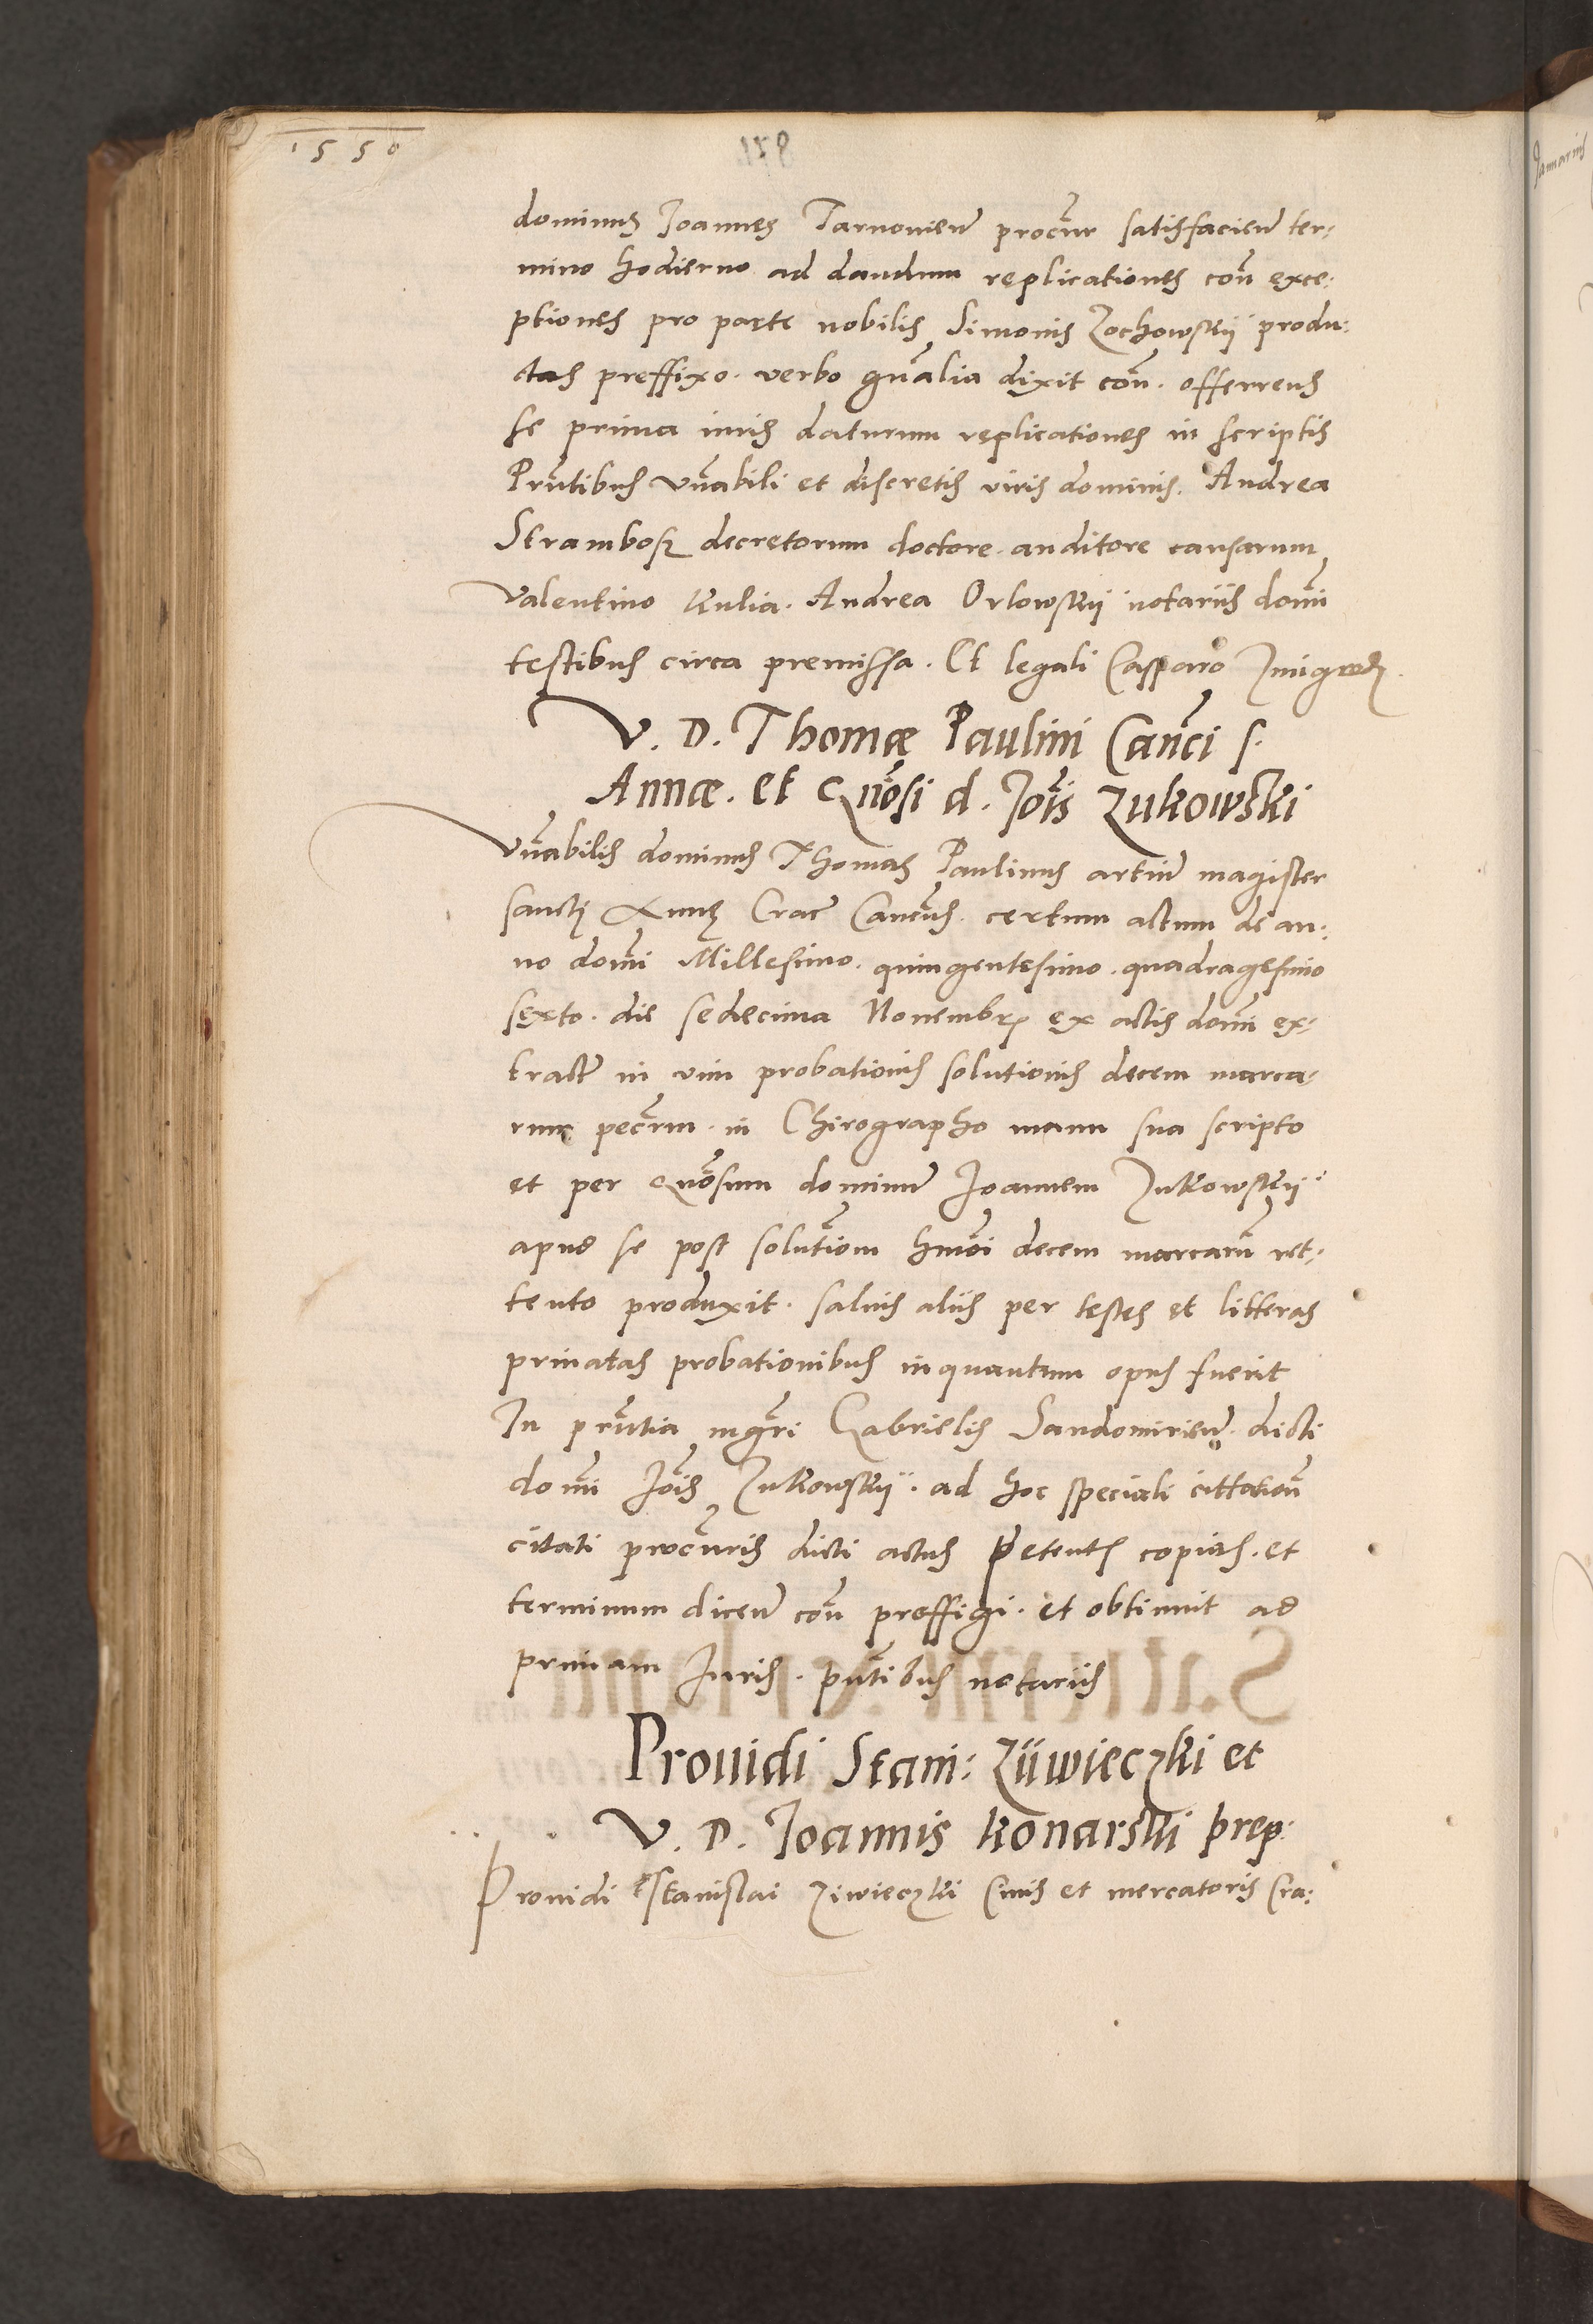 1550
dominus Joannes Tarnovien̄ procur̄ satisfacien̄ ter-
mino hodierno ad dandum replicationes con̄ exce-
ptiones pro parte nobilis Simonis Zochowskij produ-
ctas preffixo. verbo gn̄alia dixit con̄. offerrens
se prima iuris daturum replicationes in scriptis
Prn̄tibus vn̄abili et discretis viris dominis. Andrea
Strambosz decretorum doctore. auditore causarum
Valentino Kulia. Andrea Orlowskij notariis domī
testibus circa premissa. Et legali Casparo Zmigrod.
V. D. Thomæ Paulini Canc̄i s.
Annæ. et Gn̄osi d. Jo͞is Zukowski
Vn̄abilis dominus Thomas Paulinus artiū magister
sanctę Annę Crac̄ Cancus̄. certum actum de an-
no domī Millesimo. quingentesimo. quadragesimo
sexto. die sedecima Novembr. ex actis domī ex-
tract̄ in vim probationis solutionis decem marca-
rum pecc̄rum. in Chirographo manu sua scripto
et per Gn̄osum dominū Joannem Zukowskij
apud se post solutiōm hm̄oi decem marcarū ret-
tento produxit. salvis aliis per testes et litteras
privatas probationibus inquantum opus fuerit
In prn̄tia mgr̄i Gabrielis Sandomirien̄. dicti
domī Jo͞is Zukowskij. ad hoc speciali cittation̄
citati procuris̄ dicti actus Petent. copias. et
terminum dicen̄ con̄ preffigi. et obtinuit ad
primam Juris. pn̄tibus notariis
Prouidi Stani: Zijwieczki et
V. D. Joannis Konarski prep:
Prouidi Stanislai Ziwieczki Ciuis et mercatoris Cra:
Januarius